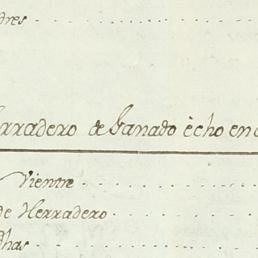 dres
erradero de Ganado écho en
Vientre
de Herradero
dhas